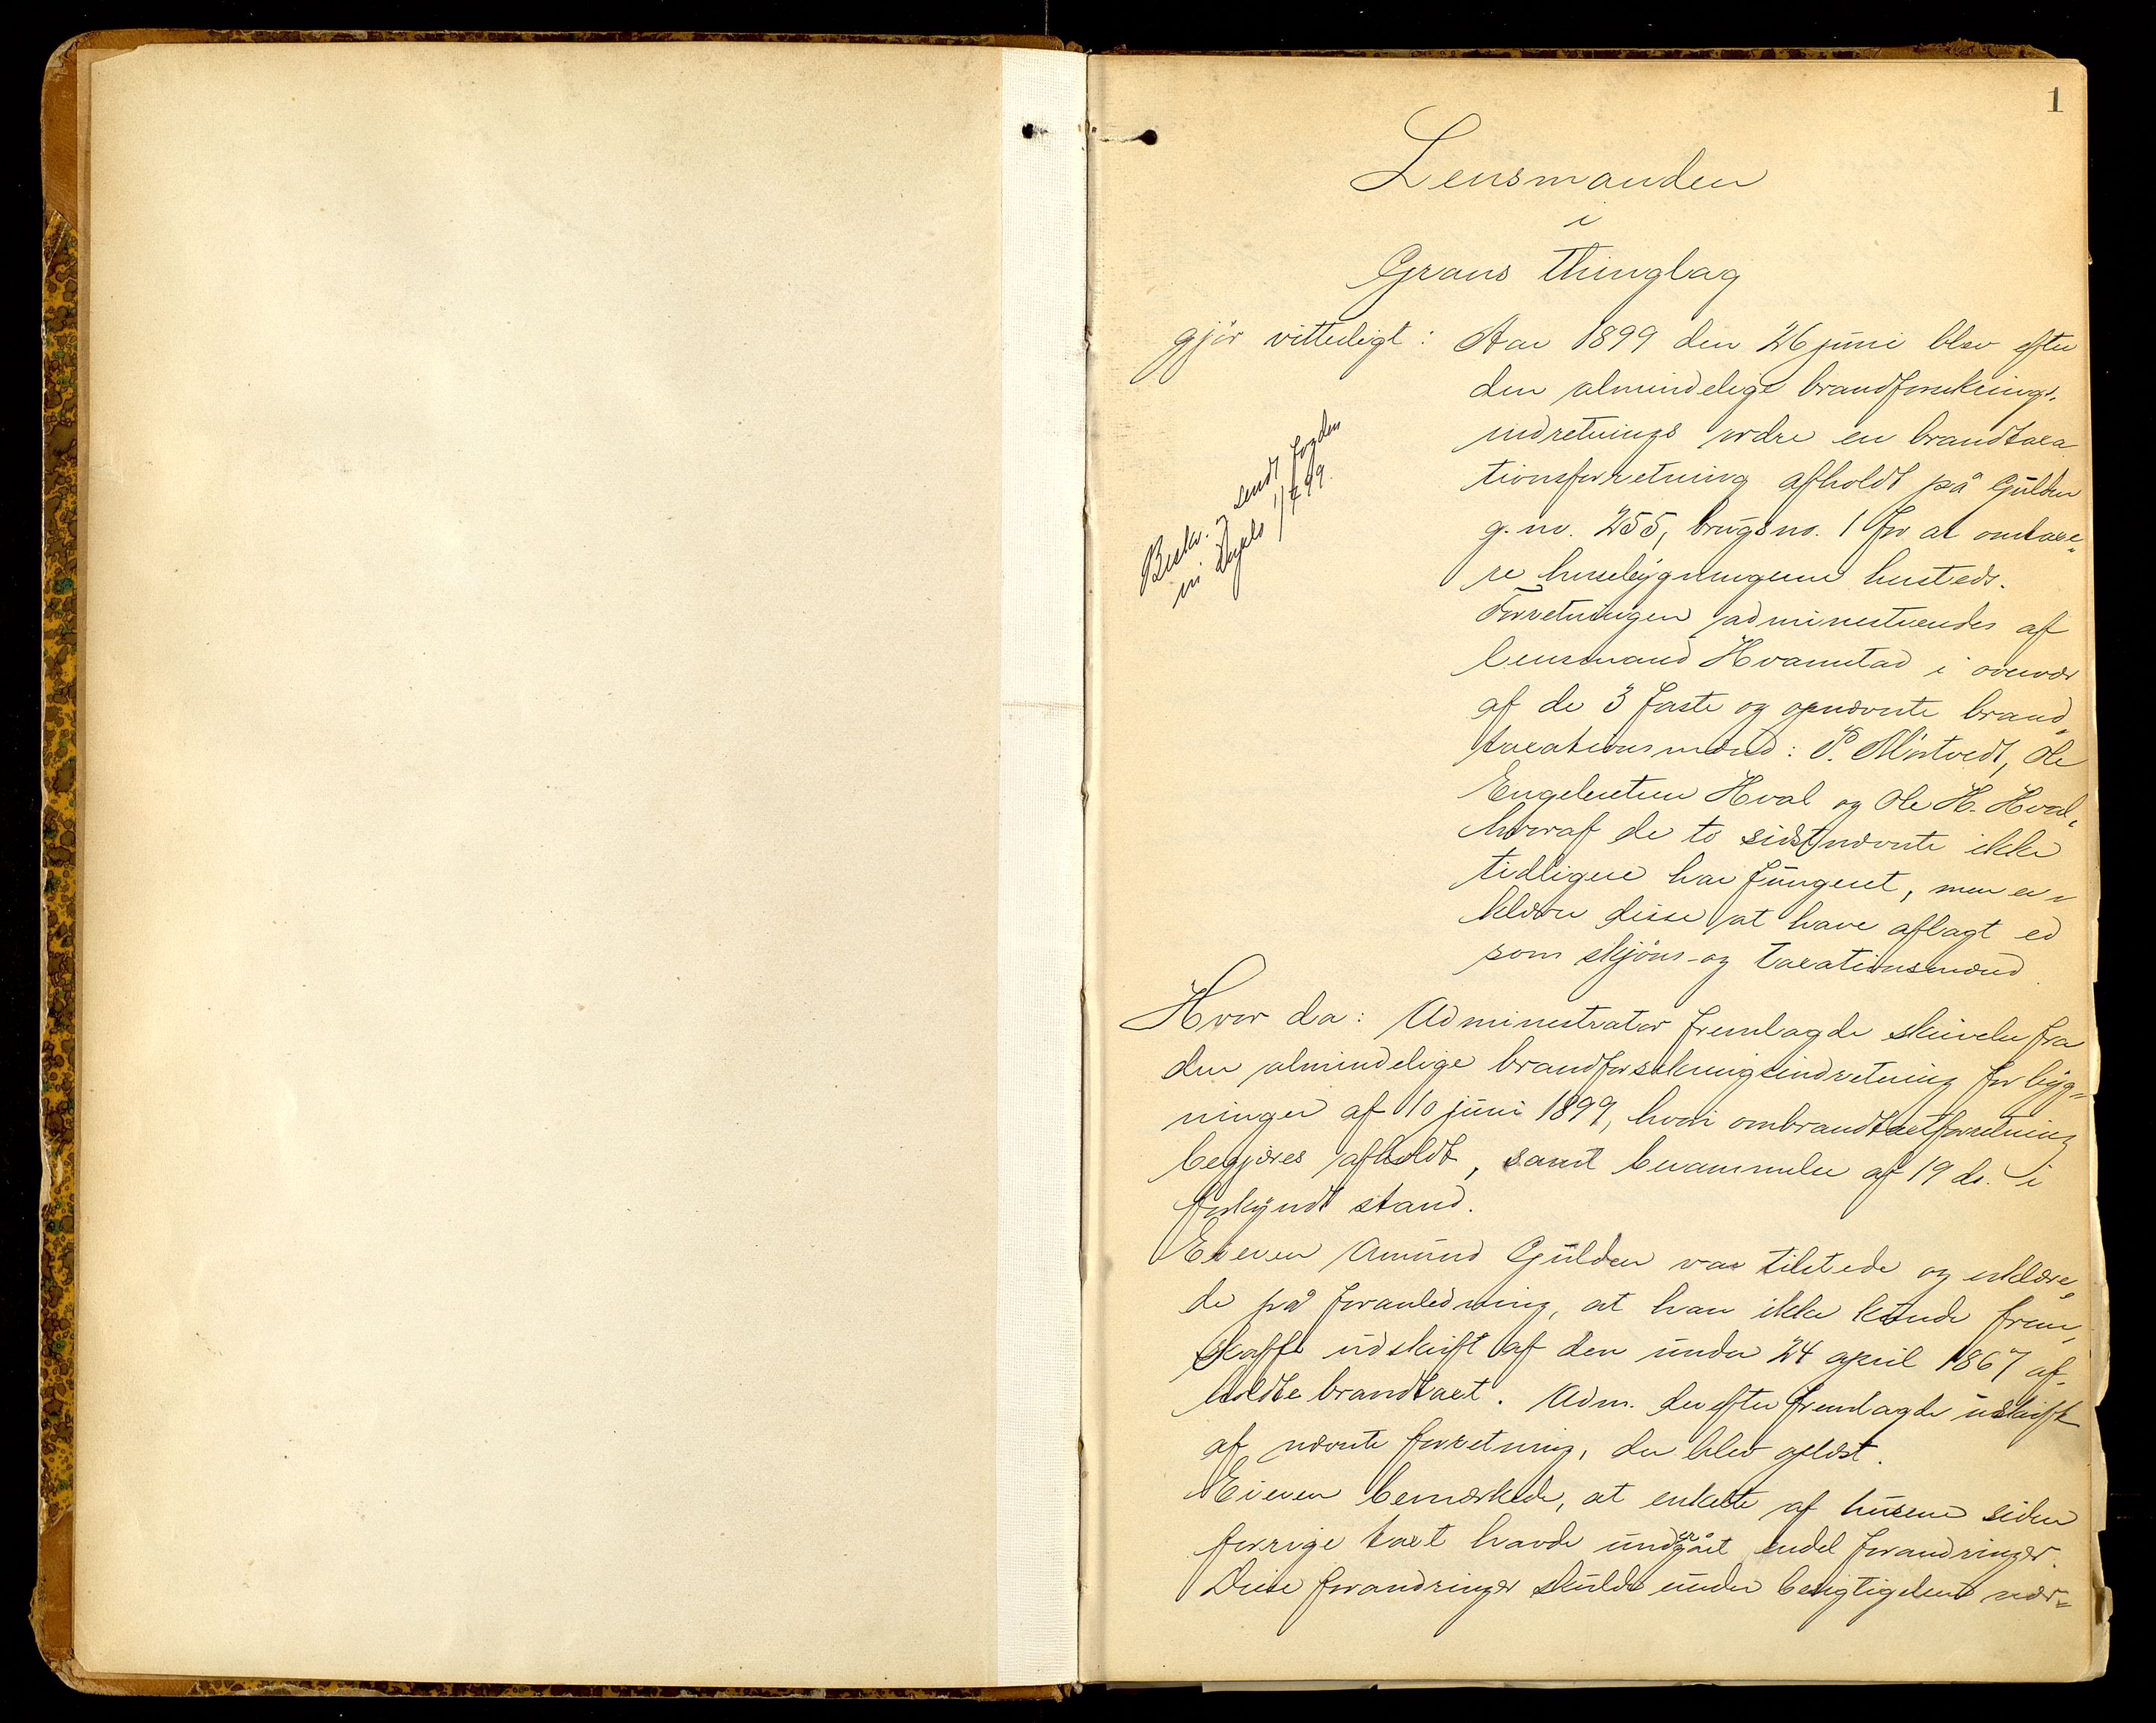 1
Lensmanden
i
Grans Thinglag
gjör vitterligt: Aar 1899 den 26 juni blev efter
den almindelige brandforsikrings-
indretnings ordre en brandtaxa
tionsforretning afholdt på Gulden
g.no. 255, brugsno. 1 for at omtaxe-
re husebygningerne hersteds.
Forretningen administreredes af
lensmand Hvamstad i overvær
af de 3 faste og opnævnte brand-
taxationsmænd: P. Mörtvedt, Ole
Engebretsen Hval og Ole H. Hval,
hvoraf de to sidstnævnte ikke
tidligere har fungeret, men er-
klærer disse at have aflagt ed
som skjöns- og taxationsmænd
Beskr. og sendt fogden
1/7 99.
Hvor da: Administrator fremlagde skrivelse fra
den almindelige brandforsikringsindretning for byg-
ninger af 10 juni 1899, hvori ombrandtaxtforretning
begjæres afholdt, samt berammelse af 19 ds. i
forkyndt stand.
Eieren Amund Gulden var tilstede og erklære-
de på foranledning, at han ikke kunde frem-
skaffe udskrift af den under 24 april 1867 af-
holdte brandtaxt. Adm. derefter fremlagde udskrift
af nævnte forretning, der blev oplæst.
Eieren bemærkede, at enkelte af husene siden
forrige taxt havde undergået endel forandringer.
Disse forandringer skulde under besigtigelsen nær-